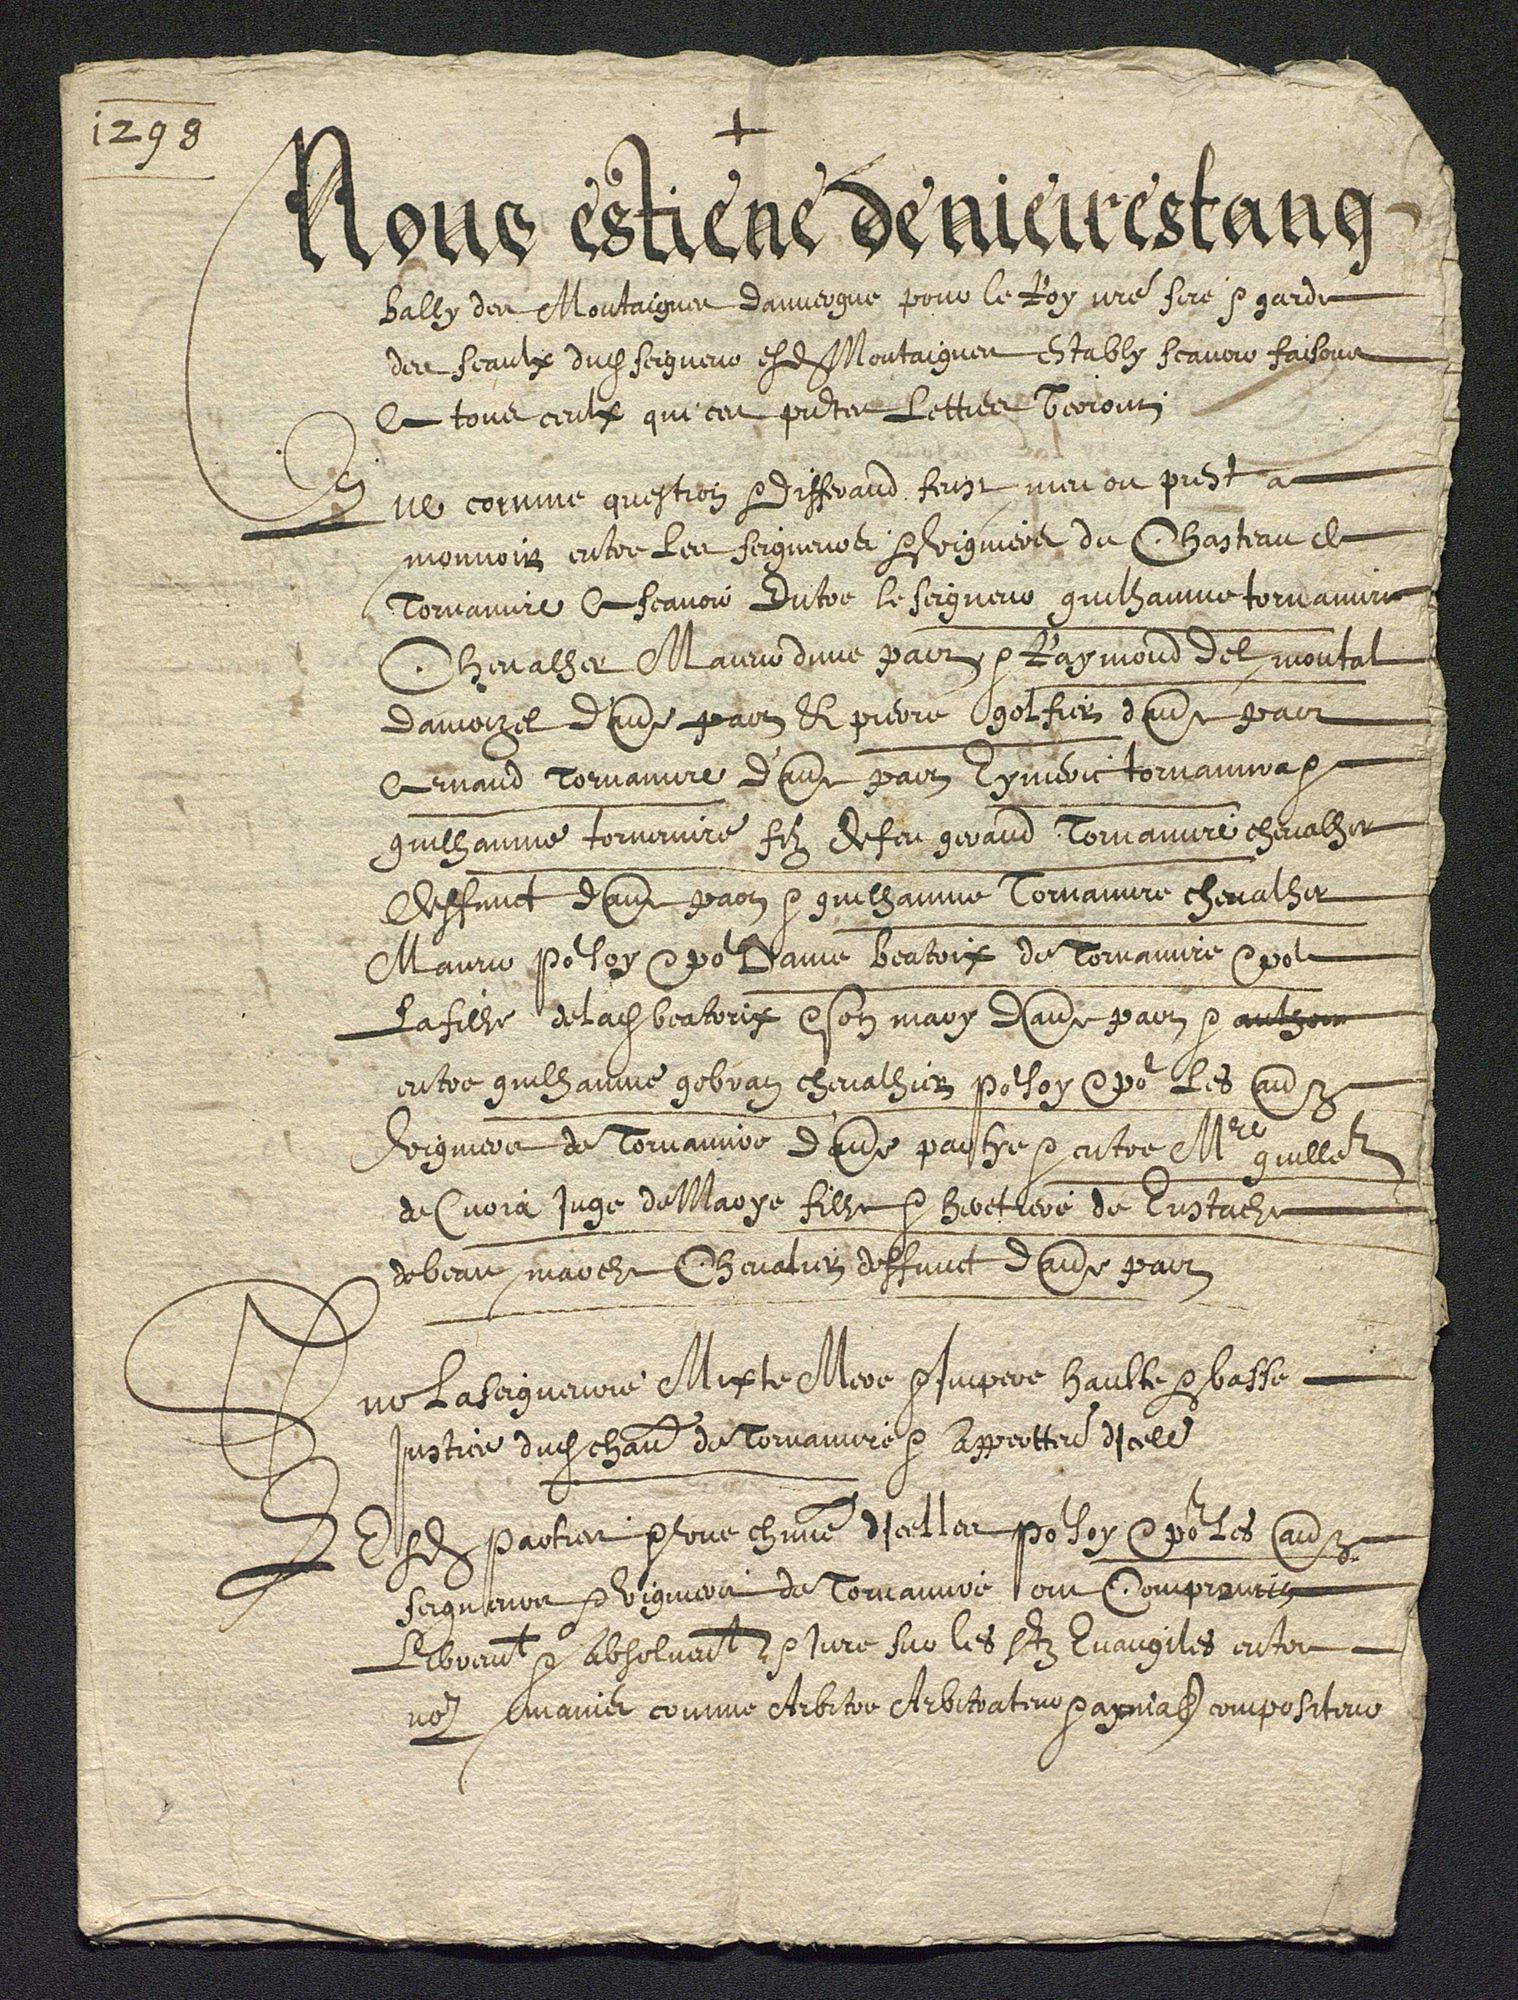 1298
+
Nous estiene de nieirestang
bally des Montaignes dauvergne pour le Roy nre sire & garde
des seaulx dud seigneur esd Montaignes estably scavoir faisons
A tous ceulx qui ces pntes Lettres verront
Que comme question & differand feust meu ou prest a
mouvoir entre Les seigneurs & seigniers du Chasteau de
Tornamire A scavoir Entre le seigneur guilhaume tornamire
Chevalher Maieur dune part & Raymond del montal
damoizel d'aue part Et pierre golfier d'aue part
Arnaud Tornamire d'aue part Eymeric tornamira &
guilhaume tornemire filz de feu geraud Tornamire chevalher
deffunct d'aue part & guilhaume Tornamire chevalher
Maieur po soy & po Dame beatrix de Tornamire & po
La filhe de lad beatrix & son mary d'aue part &
entre guilhaume gobran chevalhier po soy & po Les aues
seigniers de Tornamire d'aue partye & entre Mre guille
de Cuoria Juge de Marye filhe & heretiere de Eustache
de beau marche Chevalier deffunct d'aue part
Sur La seigneurie Mixte Mere & Impere haulte & basse
Justice dud chau de Tornamire & Appertten dicele
Lesd Parties & ung chune dicelles po soy & po Les aues
seigneurs & seigniers de Tornamire ont Compromis
Libremt & Absoluemt & Jure sur les stz Evangiles entre
noz mains comme Arbitre Arbitrateur & amiable compositeur